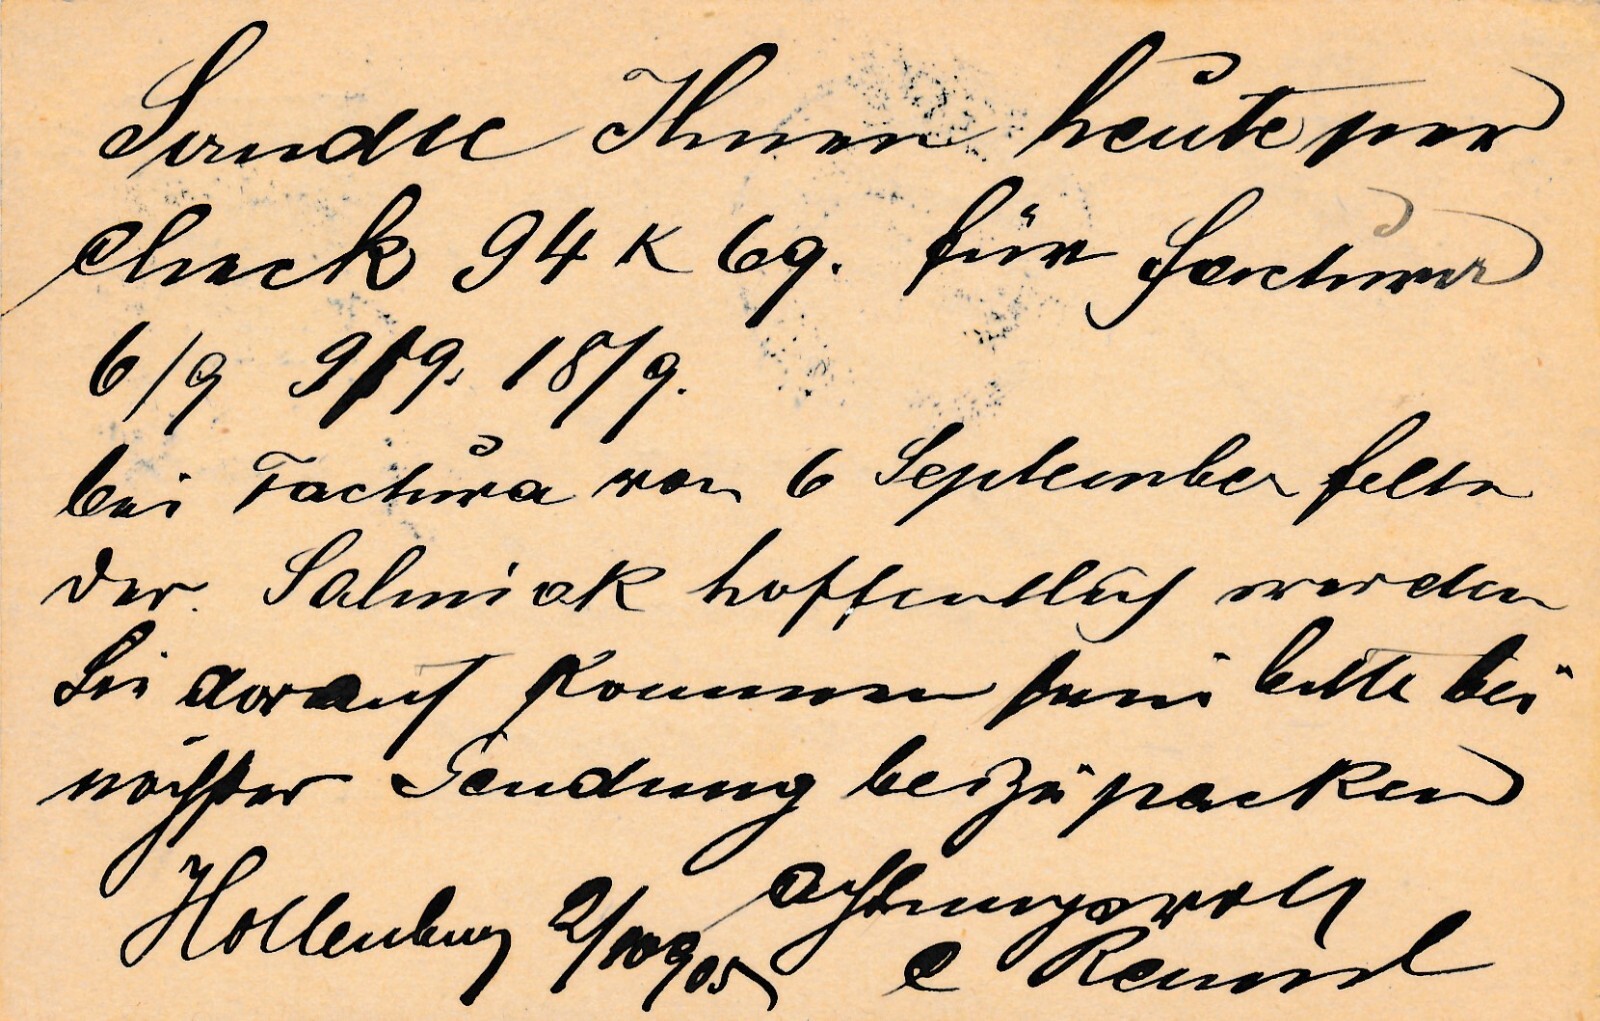 Sandte Ihnen heute per
Check 94 K 69. für Factura
6/9 9/9. 18/9.
bei Factura von 6 September fellte
der. Salmiak hoffentlich werden
Sie darauf kommen bitte bei
nächster Sendung beizupacken
Hollenburg 2/10 905 achtungsvoll